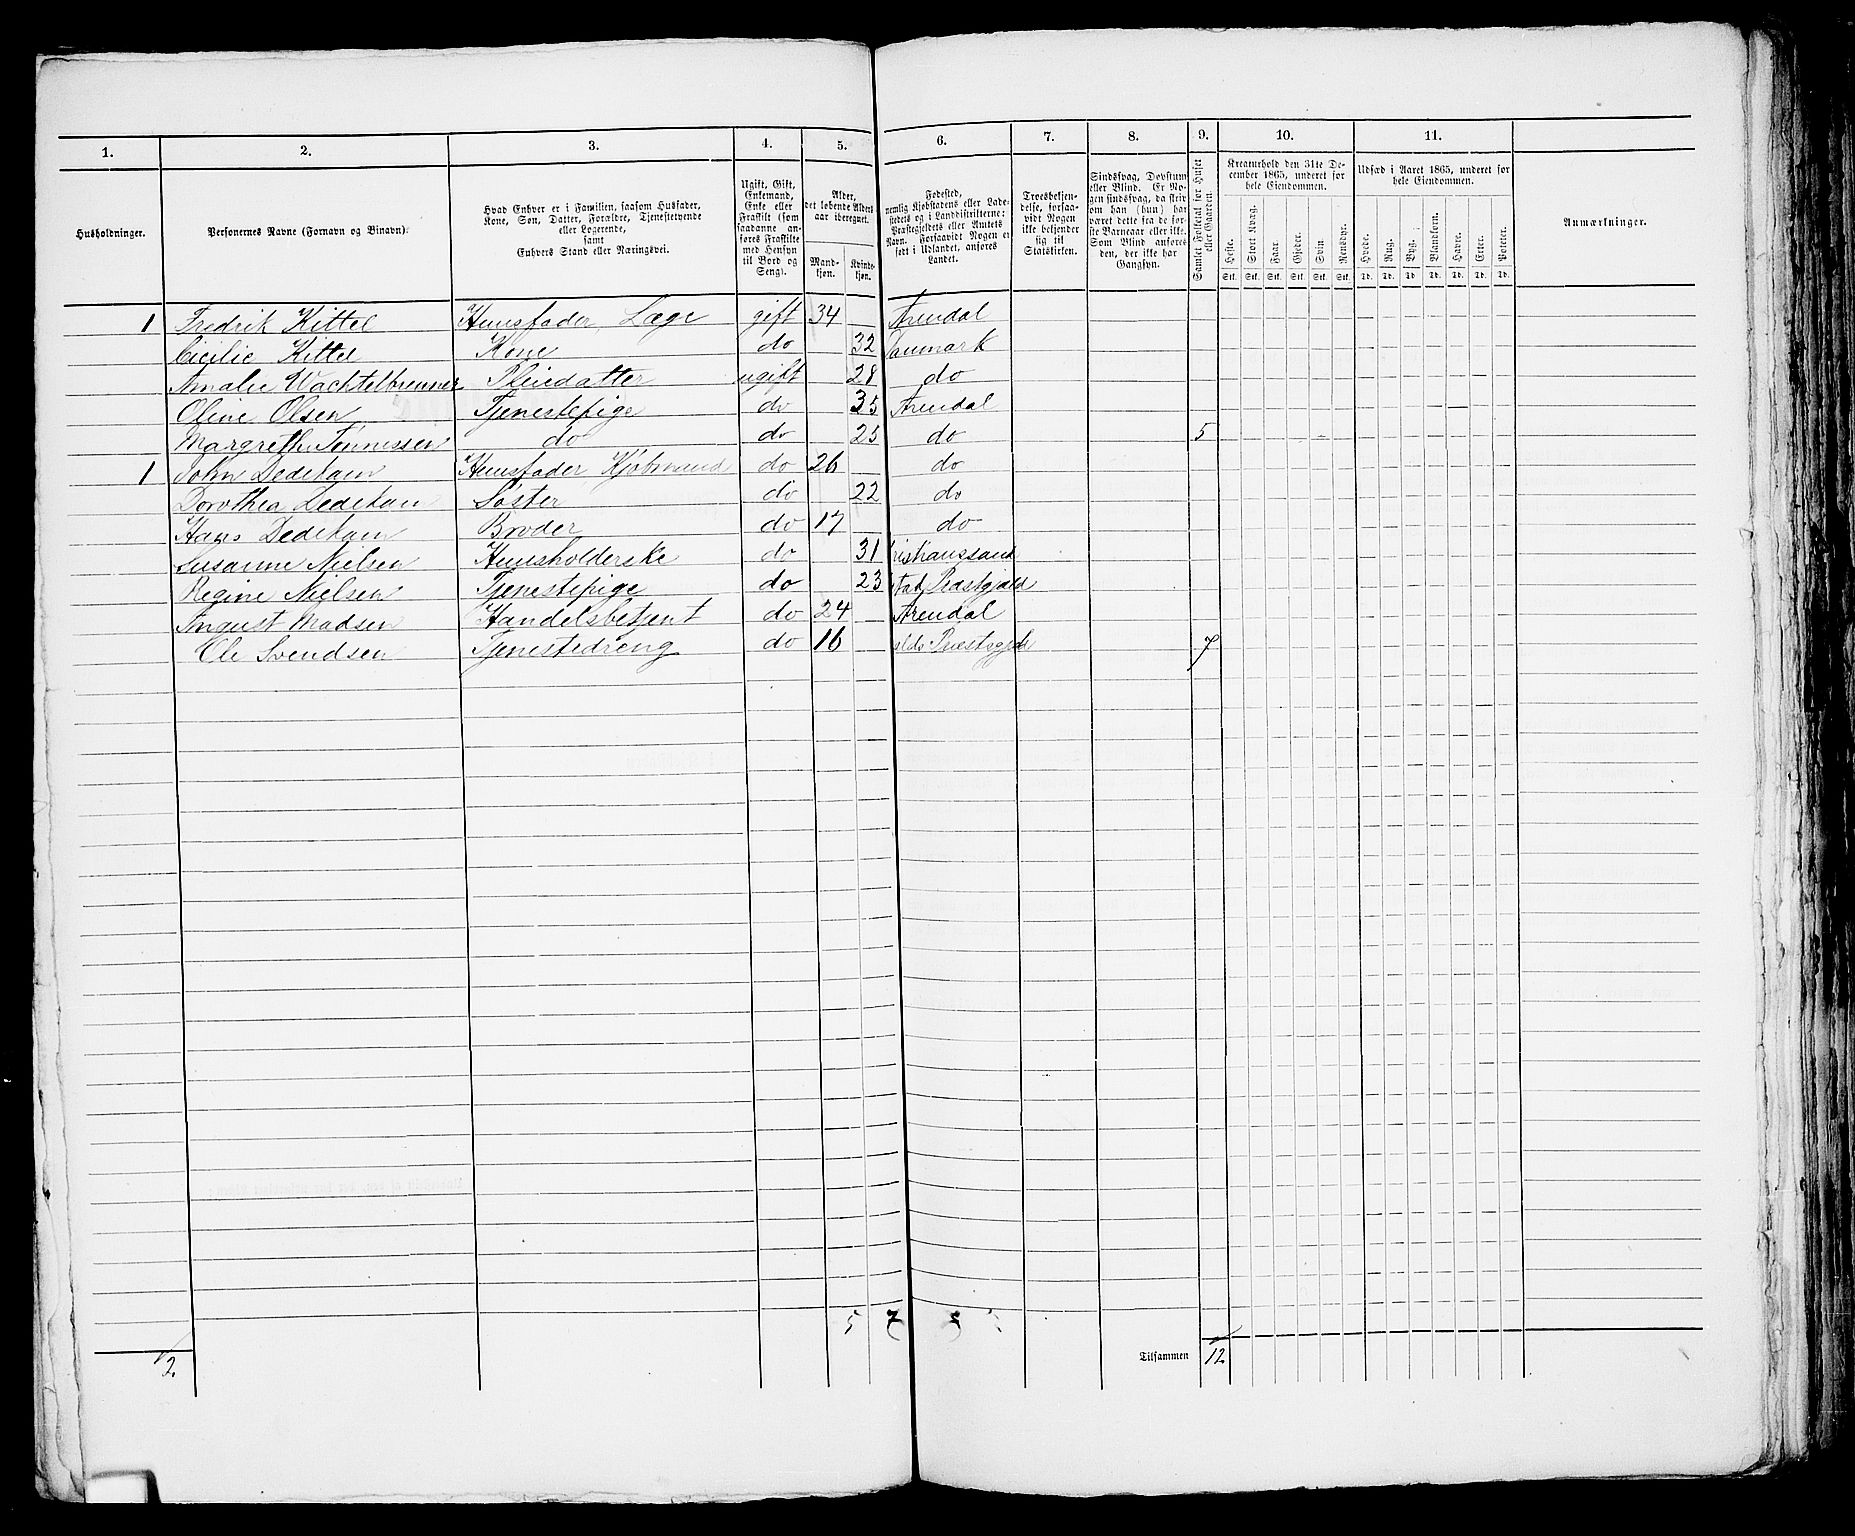 1. 2. 3. 4. 5. 6. 7. 8. 9. 10. 11.
Husholdninger.
Personernes Navne (Fornavn og Binavn).
Hvad Enhver er i Familien, saasom Husfader,
Kone, Søn, Datter, Forældre, Tjenestetyende
eller Logerende,
samt
Enhvers Stand eller Næringsvei.
Ugift, Gift,
Enkemand,
Enke eller
Fraskilt (som
saadanne an-
føres Fraskilte
med Hensyn
til Bord og
Seng).
Alder,
det løbende Alders-
aar iberegnet.
Mand-
kjøn.
Kvinde-
kjøn.
Fødested,
nemlig Kjøbstadens eller Lade-
stedets og i Landdistrikterne:
Præstegjeldets eller Amtets
Navn. Forsaavidt Nogen er
født i Udlandet, anføres
Landet.
Troesbekjen-
delse, forsaa-
vidt Nogen
ikke bekjender
sig til
Statskirken.
Sindssvag, Døvstum
eller Blind. Er No-
gen sindssvag, da skri-
ves om han (hun) har
været dette fra de før-
ste Barneaar eller ikke.
Som Blind anføres
den, der ikke har
Gangsyn.
Samlet Folketal for Huset
eller Gaarden.
Kreaturhold den 31te De-
cember 1865, underet for
hele Eiendommen.
Heste. Stort Kvæg. Faar. Gjeder. Svin. Rensdyr.
Stk. Stk. Stk. Stk. Stk. Stk.
Udsæd i Aaret 1865, underet for
hele Eiendommen.
Hvede. Rug. Byg. Blandkorn. Havre. Erter. Poteter.
Td. Td. Td. Td. Td. Td. Td.
Anmærkninger.
1 Fredrik Kittel Huusfader, Læge gift 34 Arendal
Cicilie Kittel Kone do 32 Danmark
Amalie Wachtelbrenner Pleiedatter ugift 28 do
Oline Olsen Tjenestepige do 35 Arendal
Margreth Tønnessen do do 25 do 5
1 John Dedekam Huusfader Kjøbmand do 26 do
Dorothea Dedekam Søster do 22 do
Hans Dedekam Broder do 17 do
Susanne Nielsen Huusholderske do 31 ristianssand
Regine Nielsen Tjenestepige do 23 Præstgjæld
August Madsen Handelsbetjent do 24 Arendal
Ole Svendsen Tjenestedreng do 16 Præstegjæld 7
5 7
2. Tilsammen 12